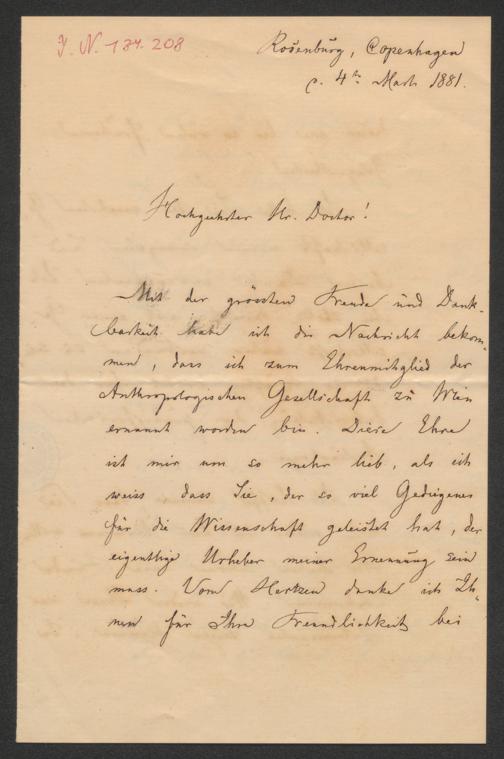 J. N. 184.208
Rosenburg, Copenhagen
d. 4th March 1881.
Hochgeehrter Hr. Doctor!
Mit der grössten Freude und Dank-
barkeit habe ich die Nachricht bekom-
men, dass ich zum Ehrenmitglied der
Anthropologischen Gesellschaft zu Wien
ernannt worden bin. Diese Ehre
ist mir um so mehr lieb, als ich
weiss dass Sie, der so viel Gediegenes
für die Wissenschaft geleistet hat, der
eigentlige Urheber meiner Ernennung sein
muss. Vom Hertzen danke ich Ih-
nen für Ihre Freundlichkeit bei